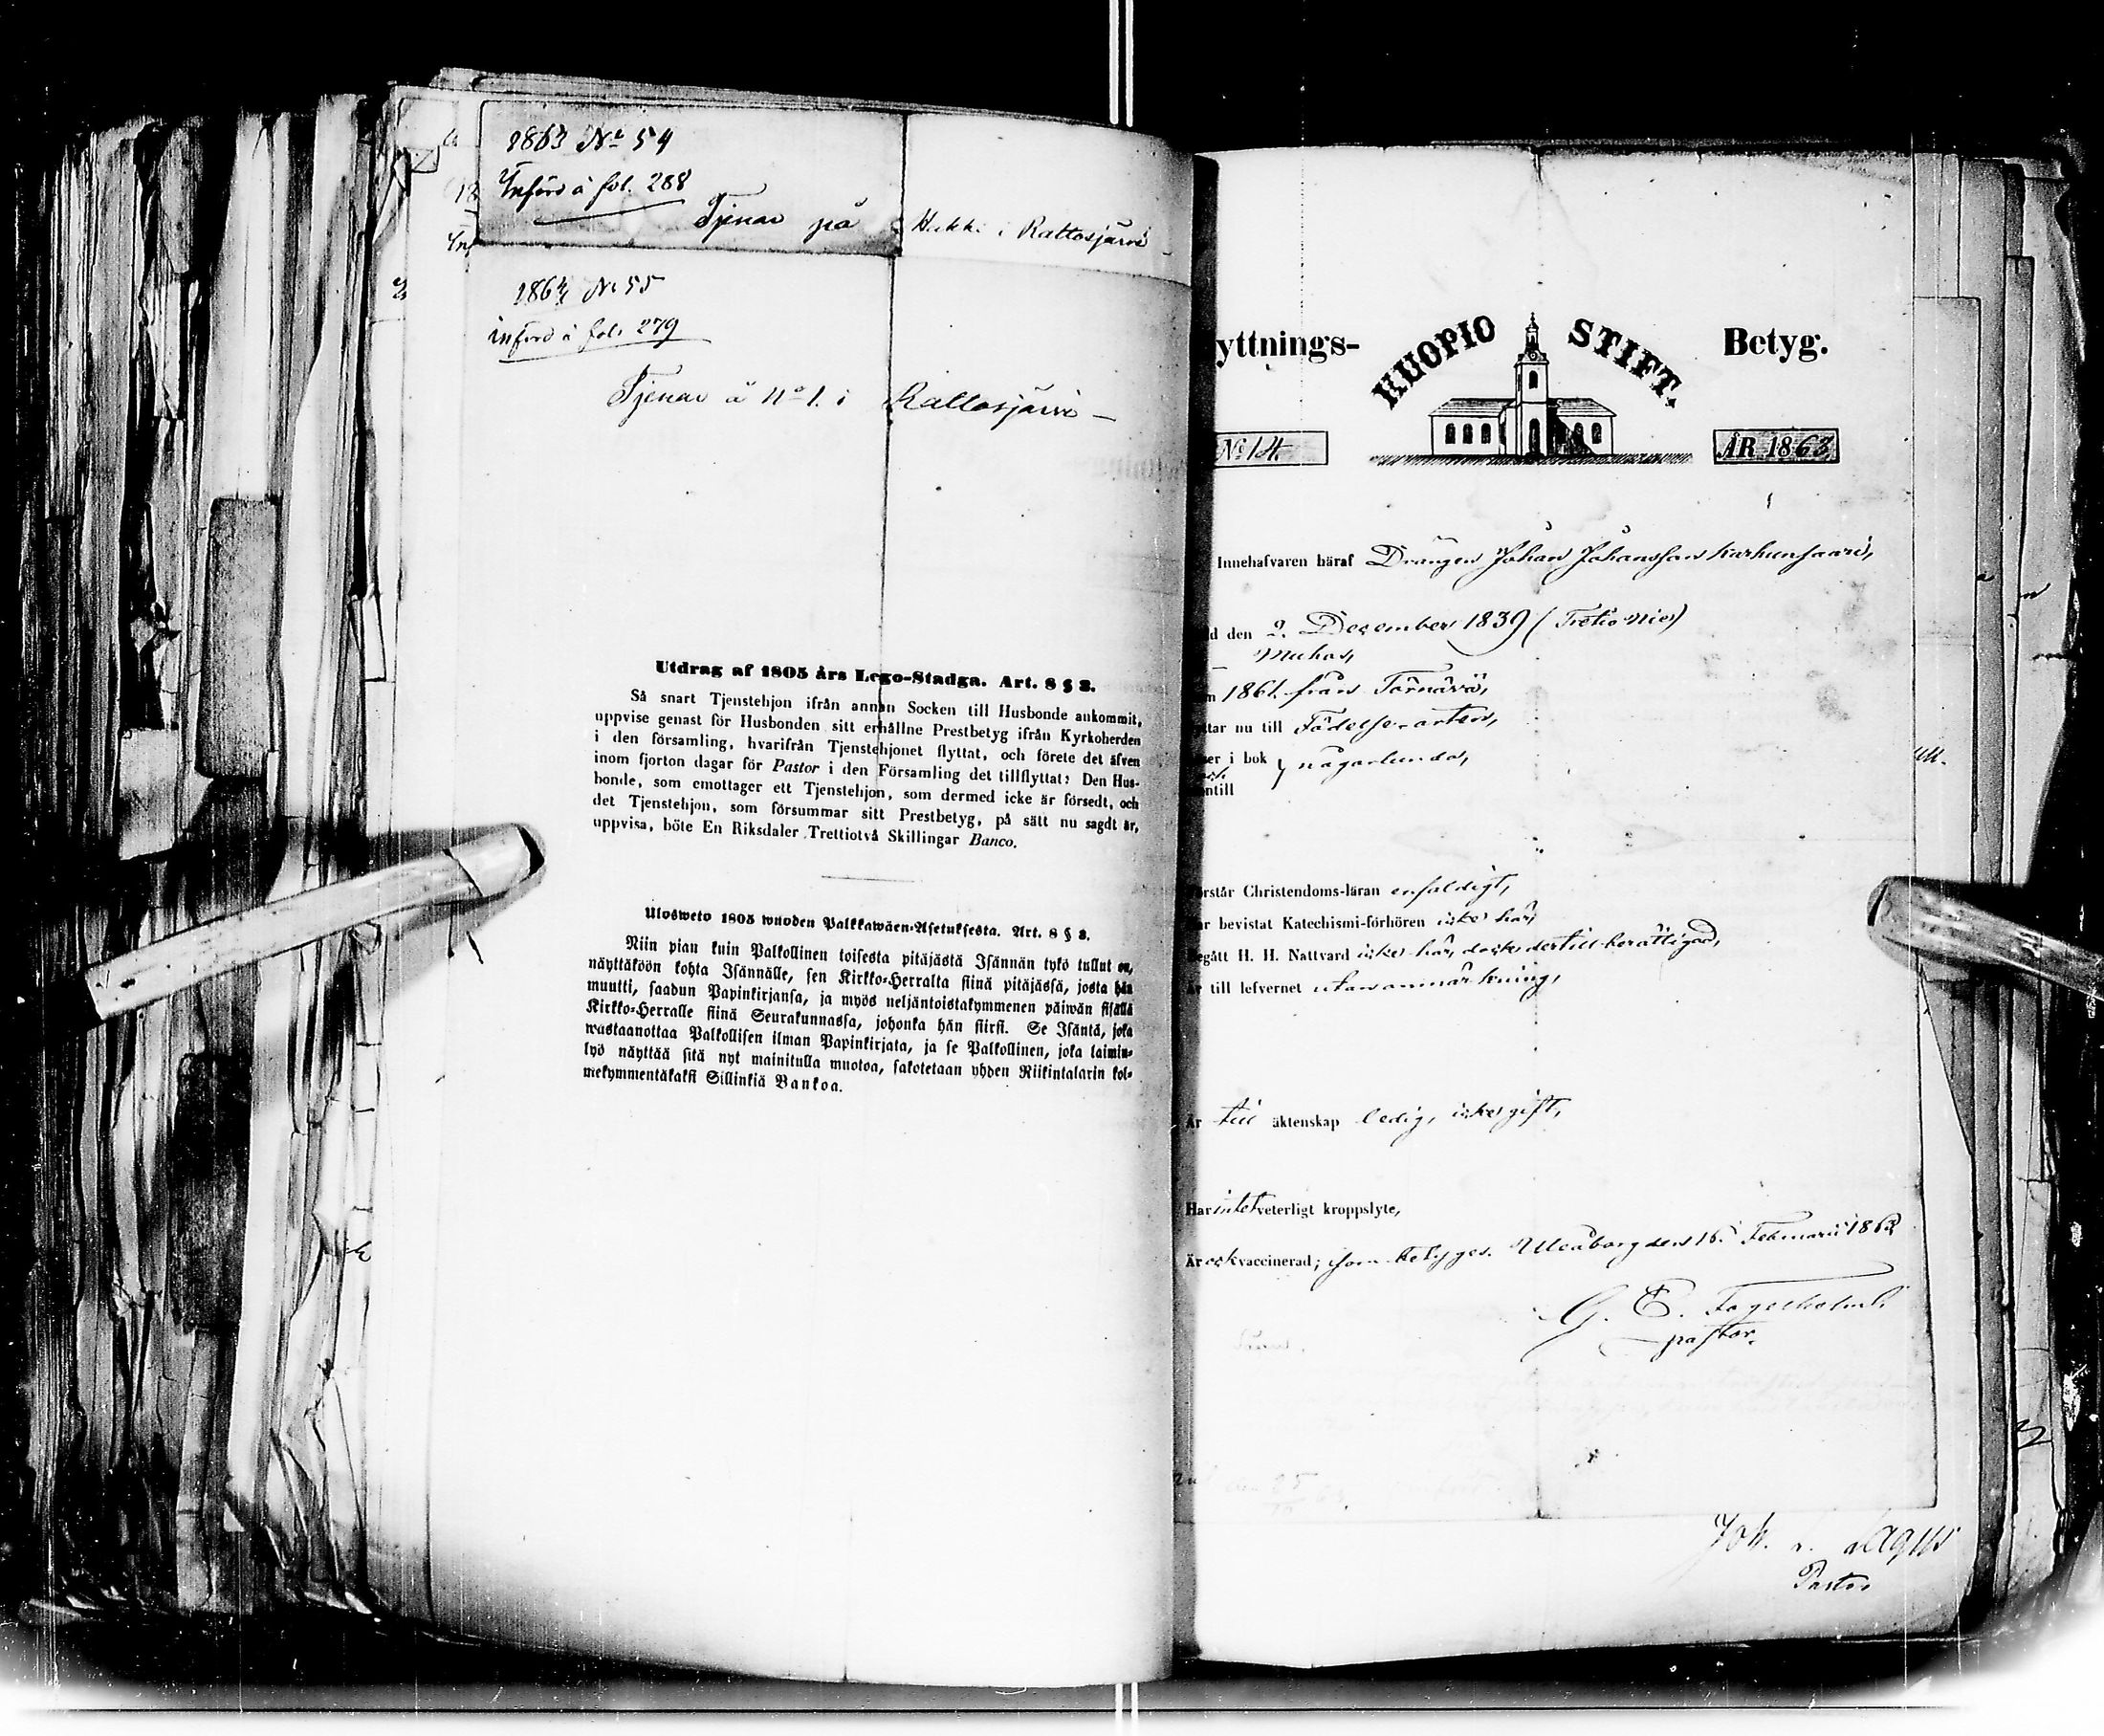 1863 No 54
Införd å fol. 288
Tjenar på Hukki i Rattosjärvi
1863 No 55
införd å fol. 279
Tjenar å No 1. i Rattosjärvi
Utdrag af 1805 års Lego-Stadga. Art. 8 § 3.
Så snart Tjenstehjon ifrån annan Socken till Husbonde ankommit,
uppvise genast för Husbonden sitt erhållne Prestbetyg ifrån Kyrkoherden
i den församling, hvarifrån Tjenstehjonet flyttat, och förete det äfven
inom fjorton dagar för Pastor i den Församling det tillflyttat: Den Hus-
bonde, som emottager ett Tjenstehjon, som dermed icke är försedt, och
det Tjenstehjon, som försummar sitt Prestbetyg, på sätt nu sagdt är,
uppvisa, böte En Riksdaler Trettiotvå Skillingar Banco.
Ulosweto 1805 wuoden Palkkawäen-Asetuksesta. Art. 8 § 3.
Niin pian kuin Palkollinen toisesta pitäjästä Isännän tykö tullut on,
näyttäköön kohta Isännälle, sen Kirkko-Herralta siinä pitäjässä, josta hän
muutti, saadun Papinkirjansa, ja myös neljäntoistakymmenen päiwän sisällä
Kirkko-Herralle siinä Seurakunnassa, johonka hän siirsi. Se Isäntä, joka
wastaanottaa Palkollisen ilman Papinkirjata, ja se Palkollinen, joka laimin-
lyö näyttää sitä nyt mainitulla muotoa, sakotetaan yhden Riikintalarin kol-
mekymmentäkaksi Sillinkiä Bankoa.
yttnings- KUOPIO STIFT. Betyg.
No 14. ÅR 1863
Innehafvaren häraf Drängen Johan Johansson Karhunsaari,
d den 2. December 1839 (Tretio nio)
Muhos,
1861. från
tar nu till Födelse-orten,
er i bok någorlunda,
ntill
rstår Christendoms-läran enfaldigt,
r bevistat Katechismi-förhören icke här,
egått H. H. Nattvard icke här, dock dertill berättigad,
r till lefvernet utan anmärkning,
Är till äktenskap ledig, icke gift,
Har intet veterligt kroppslyte,
Är ock vaccinerad; som betyges. Uleåborg den 16. Februarii 1863
G. E. Fogelholm.
pastor.
Joh. Lagus
Pastor